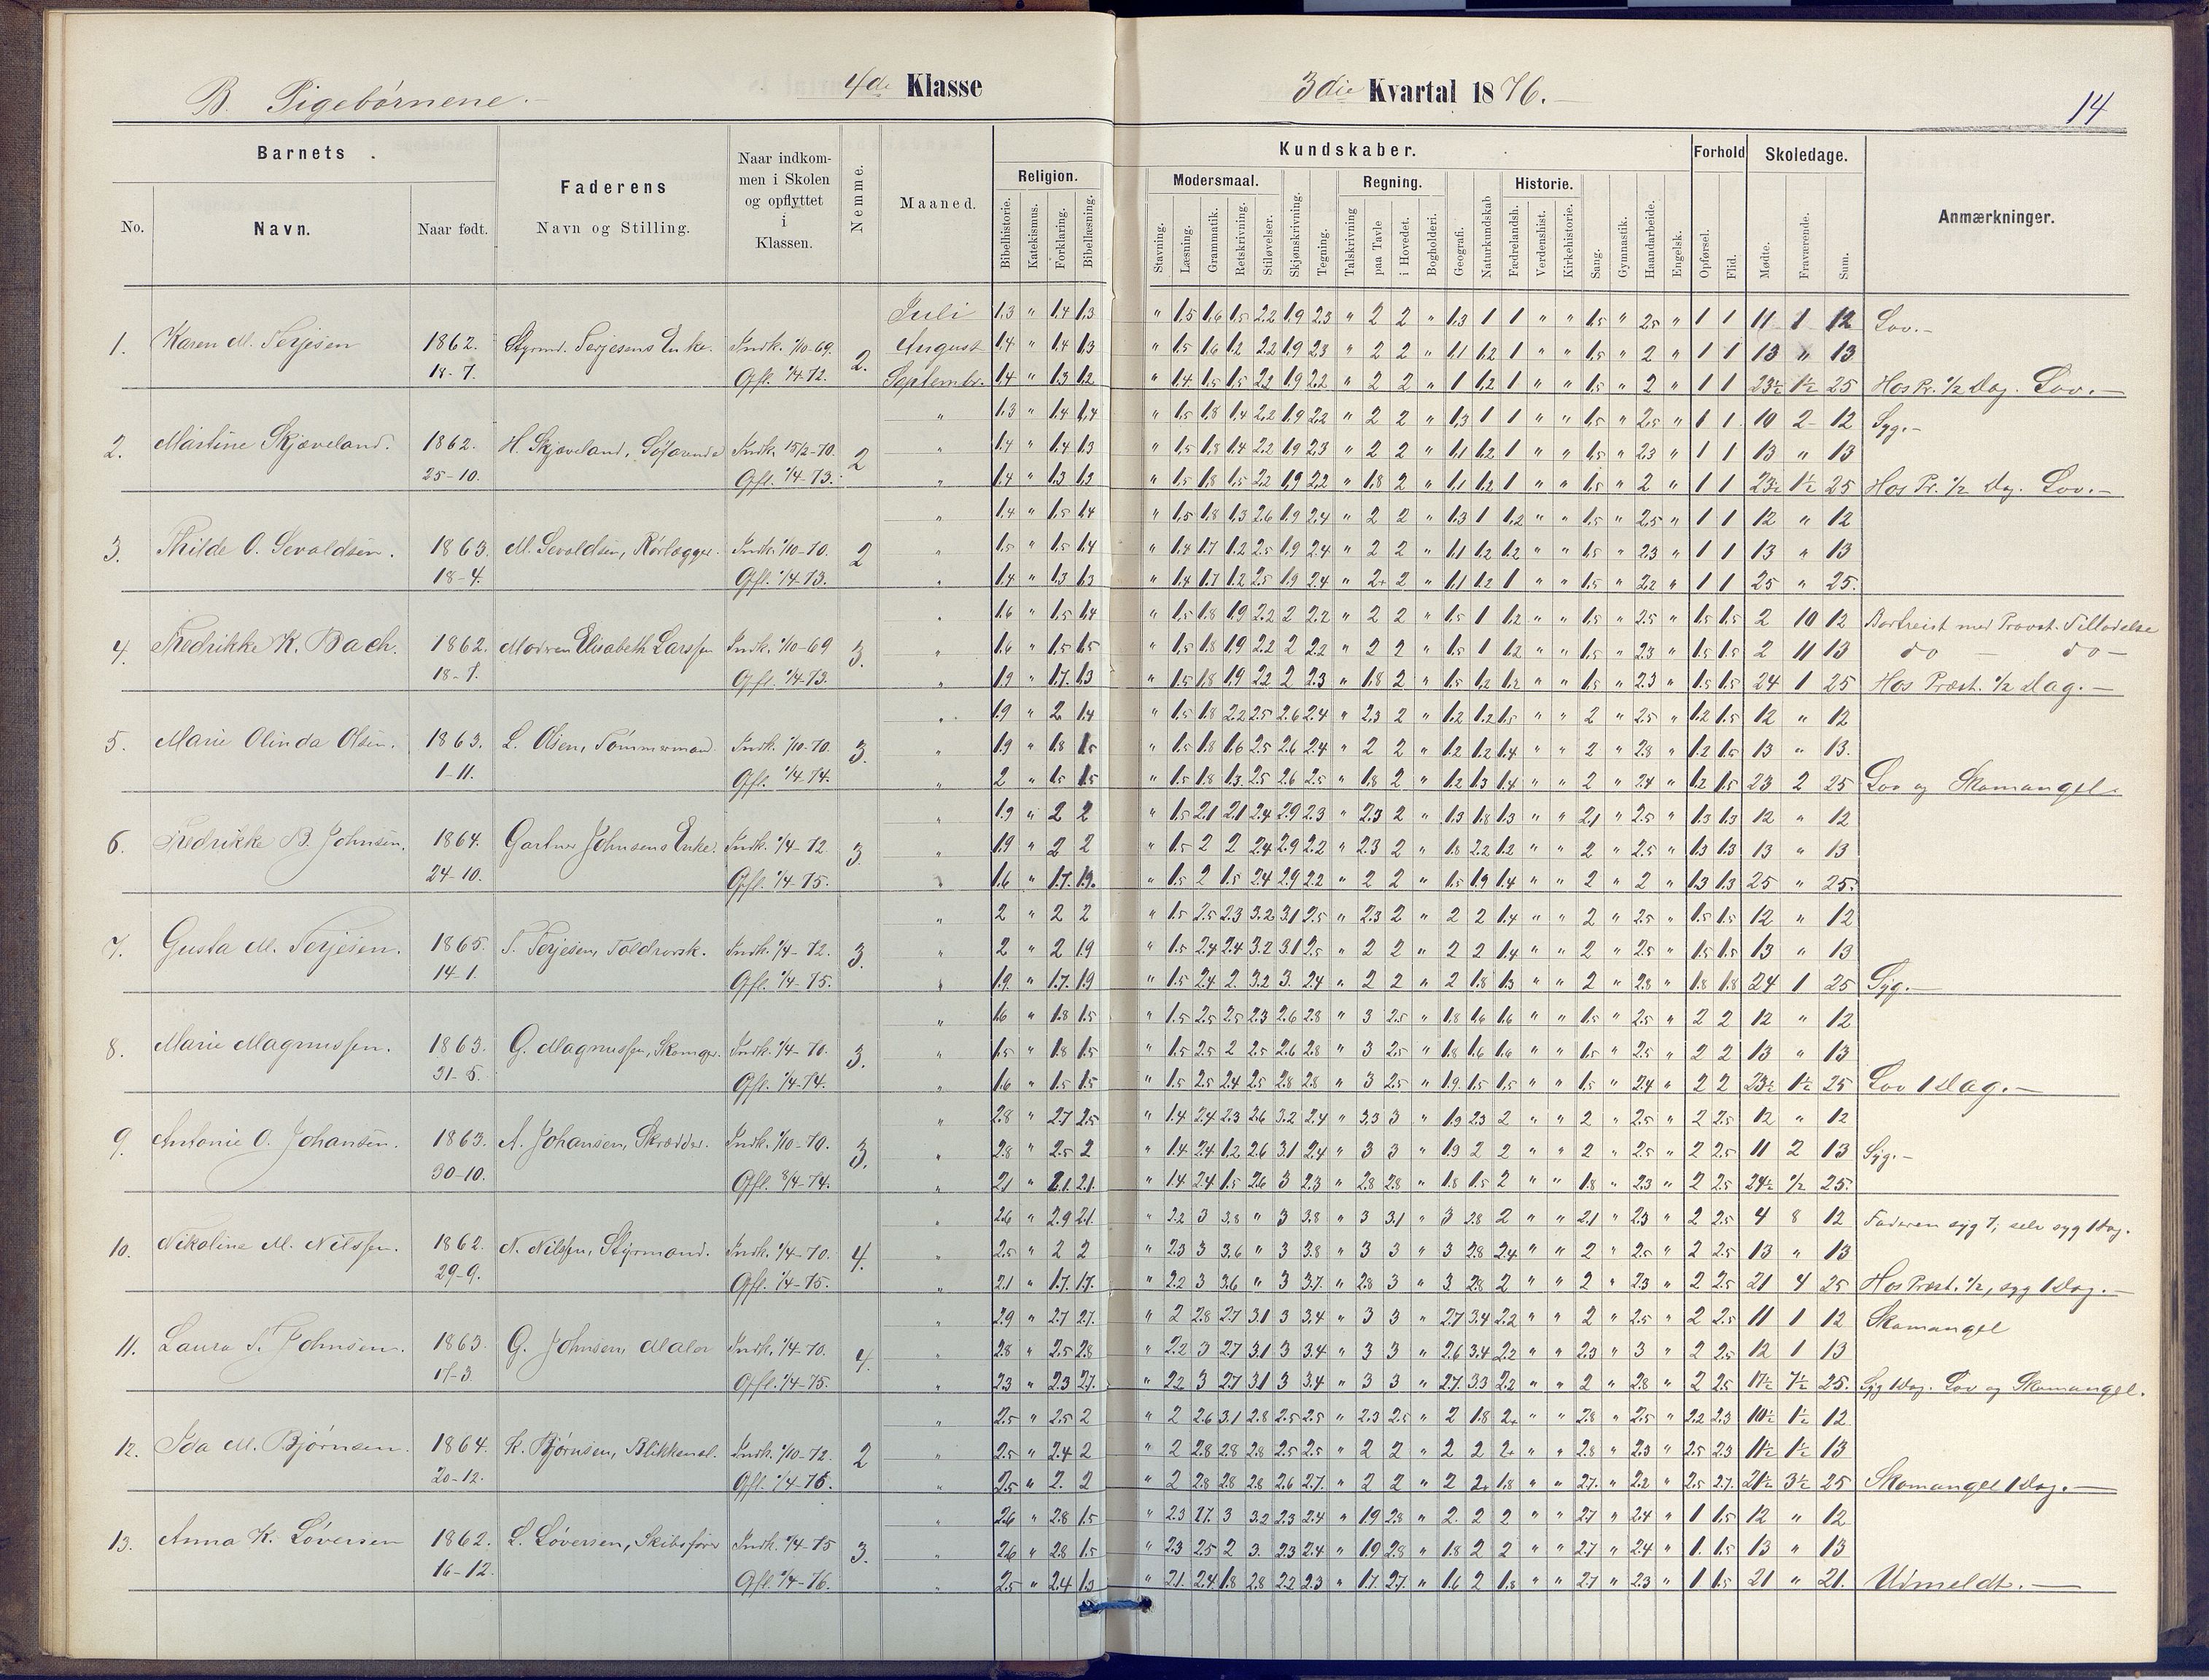 B. Pigebørnene.
4de Klasse
3die Kvartal 1876.
14
Barnets
No.
Navn.
Naar født.
Faderens
Navn og Stilling.
Naar indkom-
men i Skolen
og opflyttet
i
Klassen.
Nemme.
Maaned.
Kundskaber.
Religion.
Bibelhistorie.
Katekismus.
Forklaring.
Bibellæsning.
Modersmaal.
Stavning.
Læsning.
Grammatik.
Retskrivning.
Stiløvelser.
Skjønskrivning.
Tegning.
Regning.
Talskrivning
paa Tavle
i Hovedet.
Bogholderi.
Geografi.
Naturkundskab
Historie.
Fædrelandsh.
Verdenshist.
Kirkehistorie.
Sang.
Gymnastik.
Haandarbeide.
Engelsk.
Forhold
Opførsel.
Flid.
Skoledage.
Møde.
Fraværende.
Sum.
Anmærkninger.
1. Karen M. Terjesen 1862. 18-7. Styrmd. Terjesens Enke. Indk. 1/10-69. Opfl. 1/4-72. 2.
Juli 1.3 " 1.4 1.3 " 1.5 1.6 1.5 2.2 1.9 2.3 " 2 2 " 1.3 1 1 " " 1.5 " 2.5 " 1 1 11 1 12 Lov.-
August 1.4 " 1.4 1.3 " 1.5 1.6 1.2 2.2 1.9 2.3 " 2 2 " 1.1 1.2 1 " " 1.5 " 2 " 1 1 13 " 13
Septembr. 1.4 " 1.3 1.2 " 1.4 1.5 1.5 2.2 1.9 2.2 " 2 2 " 1 1.2 1 " " 1.5 " 2 " 1 1 23½ 1½ 25 Hos Pr. 1/2 Dag. Lov.-
2. Martine Skjæveland. 1862. 25-10. H. Skjæveland, Indk. 15/2-70. Opfl. 1/4-73. 2
" 1.3 " 1.4 1.4 " 1.5 1.8 1.4 2.2 1.9 2.2 " 2 2 " 1.3 1 1 " " 1.5 " 2.5 " 1 1 10 2 12 Syg.-
" 1.4 " 1.4 1.3 " 1.5 1.8 1.4 2.2 1.9 2.3 " 2 2 " 1.1 1.2 1 " " 1.5 " 2.3 " 1 1 13 " 13
" 1.4 " 1.3 1.3 " 1.5 1.8 1.5 2.2 1.9 2.2 " 1.8 2 " 1.1 1.2 1 " " 1.5 " 2 " 1 1 23½ 1½ 25 Hos Pr. 1/2 Dag. Lov.-
3. Thilde O. Sevaldsen. 1863. 18-4. M. Sevaldsen, Rørlægger. Indk. 1/10-70. Opfl. 1/4-73. 2
" 1.4 " 1.5 1.4 " 1.5 1.8 1.3 2.6 1.9 2.4 " 2 2 " 1.3 1 1.2 " " 1.5 " 2.5 " 1 1 12 " 12
" 1.5 " 1.5 1.4 " 1.4 1.7 1.2 2.5 1.9 2.4 " 2 2 " 1.1 1.2 1.2 " " 1.5 " 2.3 " 1 1 13 " 13
" 1.4 " 1.3 1.3 " 1.4 1.7 1.2 2.5 1.9 2.4 " 2+ 2 " 1.1 1.2 1 " " 1.5 " 2.2 " 1 1 25 " 25.
4. Fredrikke K. Bach. 1862. 18-7. Modren Elisabeth Larssen Indk. 1/10-69 Opfl. 1/4-73. 3.
" 1.6 " 1.5 1.4 " 1.5 1.8 1.9 2.2 2 2.2 " 2 2 " 1.5 1 1.2 " " 1.5 " 2.5 " 1.5 1.5 2 10 12 Bortreist med Provst. Tilladelse
" 1.6 " 1.5 1.5 " 1.5 1.8 1.9 2.2 2 2.2 " 2 2 " 1.5 1 1.2 " " 1.5 " 2.3 " 1.5 1.5 2 11 13 do - do -
" 1.9 " 1.7. 1.3 " 1.5 1.8 1.9 2.2 2 2.3 " 1.8 2 " 1.5 1.2 1.2 " " 1.5 " 2.3 " 1.5 1.5 24 1 25 Hos Præst. 1/2 Dag.-
5. Marie Olinda Olsen. 1863. 1-11. L. Olsen, Tømmermand. Indk. 1/10-70. Opfl. 1/4-74. 3.
" 1.9 " 2 1.4 " 1.5 1.8 2.2 2.5 2.6 2.4 " 2.3 2 " 1.2 1.2 1.5 " " 2 " 2.5 " 1.2 1.5 12 " 12
" 1.9 " 1.8 1.5 " 1.5 1.8 1.6 2.5 2.6 2.4 " 2 2 " 1.2 1.2 1.4 " " 2 " 2.8 " 1.2 1.5 13 " 13.
" 2 " 1.5 1.5 " 1.5 1.8 1.3. 2.5 2.6 2.5 " 1.8 2 " 1.2 1.3 1.4 " " 2 " 2.4 " 1.2 1.5 23 2 25 Lov og Skomangel.
6. Fredrikke B. Johnsen. 1864. 24-10. Gartner Johnsens Enke. Indk. 1/4-72 Opfl. 1/4-75. 3.
" 1.9 " 2 2 " 1.5 2.1 2.1 2.4 2.9 2.3 " 2.3 2 " 1.3 1.8 1.3 " " 2.1 " 2.5 " 1.3 1.3 12 " 12
" 1.9 " 2 2 " 1.5 2 2 2.4 2.9 2.2 " 2.3 2 " 1.8 2.2 1.2 " " 2 " 2.5 " 1.3 1.3 13 " 13
" 1.6 " 1.7. 1.9. " 1.5 2 1.5 2.4 2.9 2.2 " 2 2 " 1.5 1.9 1.4 " " 2 " 2 " 1.3 1.3 25 " 25.
7. Gusta M. Terjesen. 1865. 14-1. T. Terjesen, Toldrorsk. Indk. 1/4-72. Opfl. 1/4-75. 3.
" 2 " 2 2 " 1.5 2.5 2.3 3.2 3.1 2.5 " 2.3 2 " 2 2 1.4 " " 2 " 2.5 " 1.5 1.5 12 " 12
" 2 " 2 1.9 " 1.5 2.4 2.4 3.2 3.1 2.5 " 2 2 " 2 2 1.4 " " 2 " 2.5 " 1.5 1.5 13 " 13
" 1.9. " 1.7. 1.9 " 1.5 2.4 2 3.2 3. 2.4 " 2 2 " 2 1.8 1.3 " " 2 " 2.8 " 1.8 1.8 24 1 25 Syg.-
8. Marie Magnussen. 1863. 31-5. G. Magnussen, Skomgr. Indk. 1/4-70. Opfl. 1/4-74. 3.
" 1.6 " 1.8 1.5 " 1.5 2.5 2.5 2.3 2.6 2.8 " 3 2.5 " 1.8 1.6 1.6 " " 1.5 " 2.5 " 2 2 12 " 12
" 1.5 " 1.8 1.5 " 1.5 2.5 2 2.5 2.6 2.8 " 3 2.5 " 1.8 1.6 1.6 " " 1.5 " 2.5 " 2 2 13 " 13
" 1.6 " 1.5 1.5 " 1.5 2.5 2.4 2.5 2.8 2.8 " 3 2.5 " 1.9. 1.5 1.5 " " 1.5 " 2.4 " 2 2 23½ 1½ 25 Lov 1 Dag.-
9. Antonie O. Johansen. 1863. 30-10. A. Johansen, Skrædder. Indk. 1/10-70. Opfl. 8/4-74. 3.
" 2.8 " 2.7 2.5 " 1.4 2.4 2.3 2.6 3.2 2.4 " 3.3 3 " 1.9 2.3 2 " " 2 " 2.5 " 2 2.5 12 " 12
" 2.8 " 2.5 2 " 1.4 2.4 1.2 2.6 3.1 2.4 " 3 3 " 1.9 2 2 " " 2 " 2.5 " 2 2.5 11 2 13 Syg.-
" 2.1 " 2.1. 2.1. " 1.4 2.4 1.5 2.6 3 2.3 " 2.8 2.8 " 1.8 1.5 2 " " 1.8 " 2.3 " 2 2.5 24½ 1/2 25.
10. Nikoline M. Nilssen. 1862. 29-9. N. Nilssen, Styrmand. Indk. 1/4-70. Opfl. 1/4-75. 4.
" 2.6 " 2.9 2.1. " 2.2 3 3.8 " 3 3.8 " 3 3.1 " 3 2.8 2 " " 2.1 " 2.3 " 2 2.5 4 8 12 Faderen syg 7, selv syg 1 Dag.
" 2.5 " 2 2 " 2.3 3 3.6 " 3 3.8 " 3 3 " 3 2.8 2.4 " " 2 " 2.5 " 2 2.5 13 " 13
" 2.1 " 1.7. 1.7. " 2.2 3 3.6 " 3 3.7. " 2.8 3 " 3. 2.8 2 " " 2 " 2.3 " 2 2.5 21 4 25 Hos Præst. 1/2, syg 1 Dag.-
11. Laura S. Johnsen. 1863. 17-3. G. Johnsen, Maler Indk. 1/4-70. Opfl. 1/4-75. 4.
" 2.9 " 2.7 2.7. " 2 2.8 2.7 3.1 3 3.4 " 3 3 " 2.7 3.4 2.2 " " 2 " 2.5 " 2 2.5 11 1 12 Skomangel
" 2.8 " 2.5 2.8 " 2.2 3 2.7 3.1 3 3.4 " 3 3 " 2.6 3.4 2.2 " " 2.3 " 3 " 2 2.5 12 1 13
" 2.3 " 2.3 2.7. " 2.2 3 2.7 3.1 3 3.4 " 3 3 " 2.7. 3.3 2.2 " " 2 " 2.8 " 2 2.5 17½ 7½ 25. Syg 1 Dag. Lov og Skomangel.
12. Ida M. Bjørnsen. 1864. 20-12. K. Bjørnsen, Blikkensl. Indk. 1/10-72. Opfl. 1/4-75. 2
" 2.5 " 2.5 2 " 2 2.6 3.1 2.8 2.5 2.5 " 2.3 2.5 " 2 1.8 2+ " " 2.8 " 2.5 " 2.2 2.3 10½ 1½ 12
" 2.5 " 2.4 2 " 2 2.8 2.8 2.8 2.5 2.5 " 2 2 " 2 2 2+ " " 2.8 " 2.3 " 2.5 2.3 11½ 1½ 13
" 2.5 " 2. 2 " 2 2.8 2.8 2.8 2.6 2.7. " 2 2 " 2 2+ 1.8 " " 2.7. " 2.2 " 2.5 2.7. 21½ 3½ 25 Skomangel 1 Dag.-
13. Anna K. Løversen 1862. 16-12. L. Løversen, Skibsfører Indk. 1/4-75 Opfl. 1/4-76. 3.
" 2.6 " 2.8 1.5 " 2.3 2.7. 3 3.2 2.3 2.4 " 1.9 2.8 " 2. 2 2 " " 2.7 " 2.4 " 1 1.5 12 " 12
" 2.6 " 2.8 1.5 " 2.3 2.5 2 3. 2.3 2.4 " 1.9 2.8 " 1.8 2 2 " " 2.7 " 2.4 " 1. 1.5 13 " 13
" 2.5 " 2.4 1.3 " 2.1. 2.4 1.8 2.8 2.2 2.3 " 1.7. 2.7. " 1.6 2 1.8 " " 2.7 " 2.3 " 1 1.5 21 " 21. Udmeldt.-